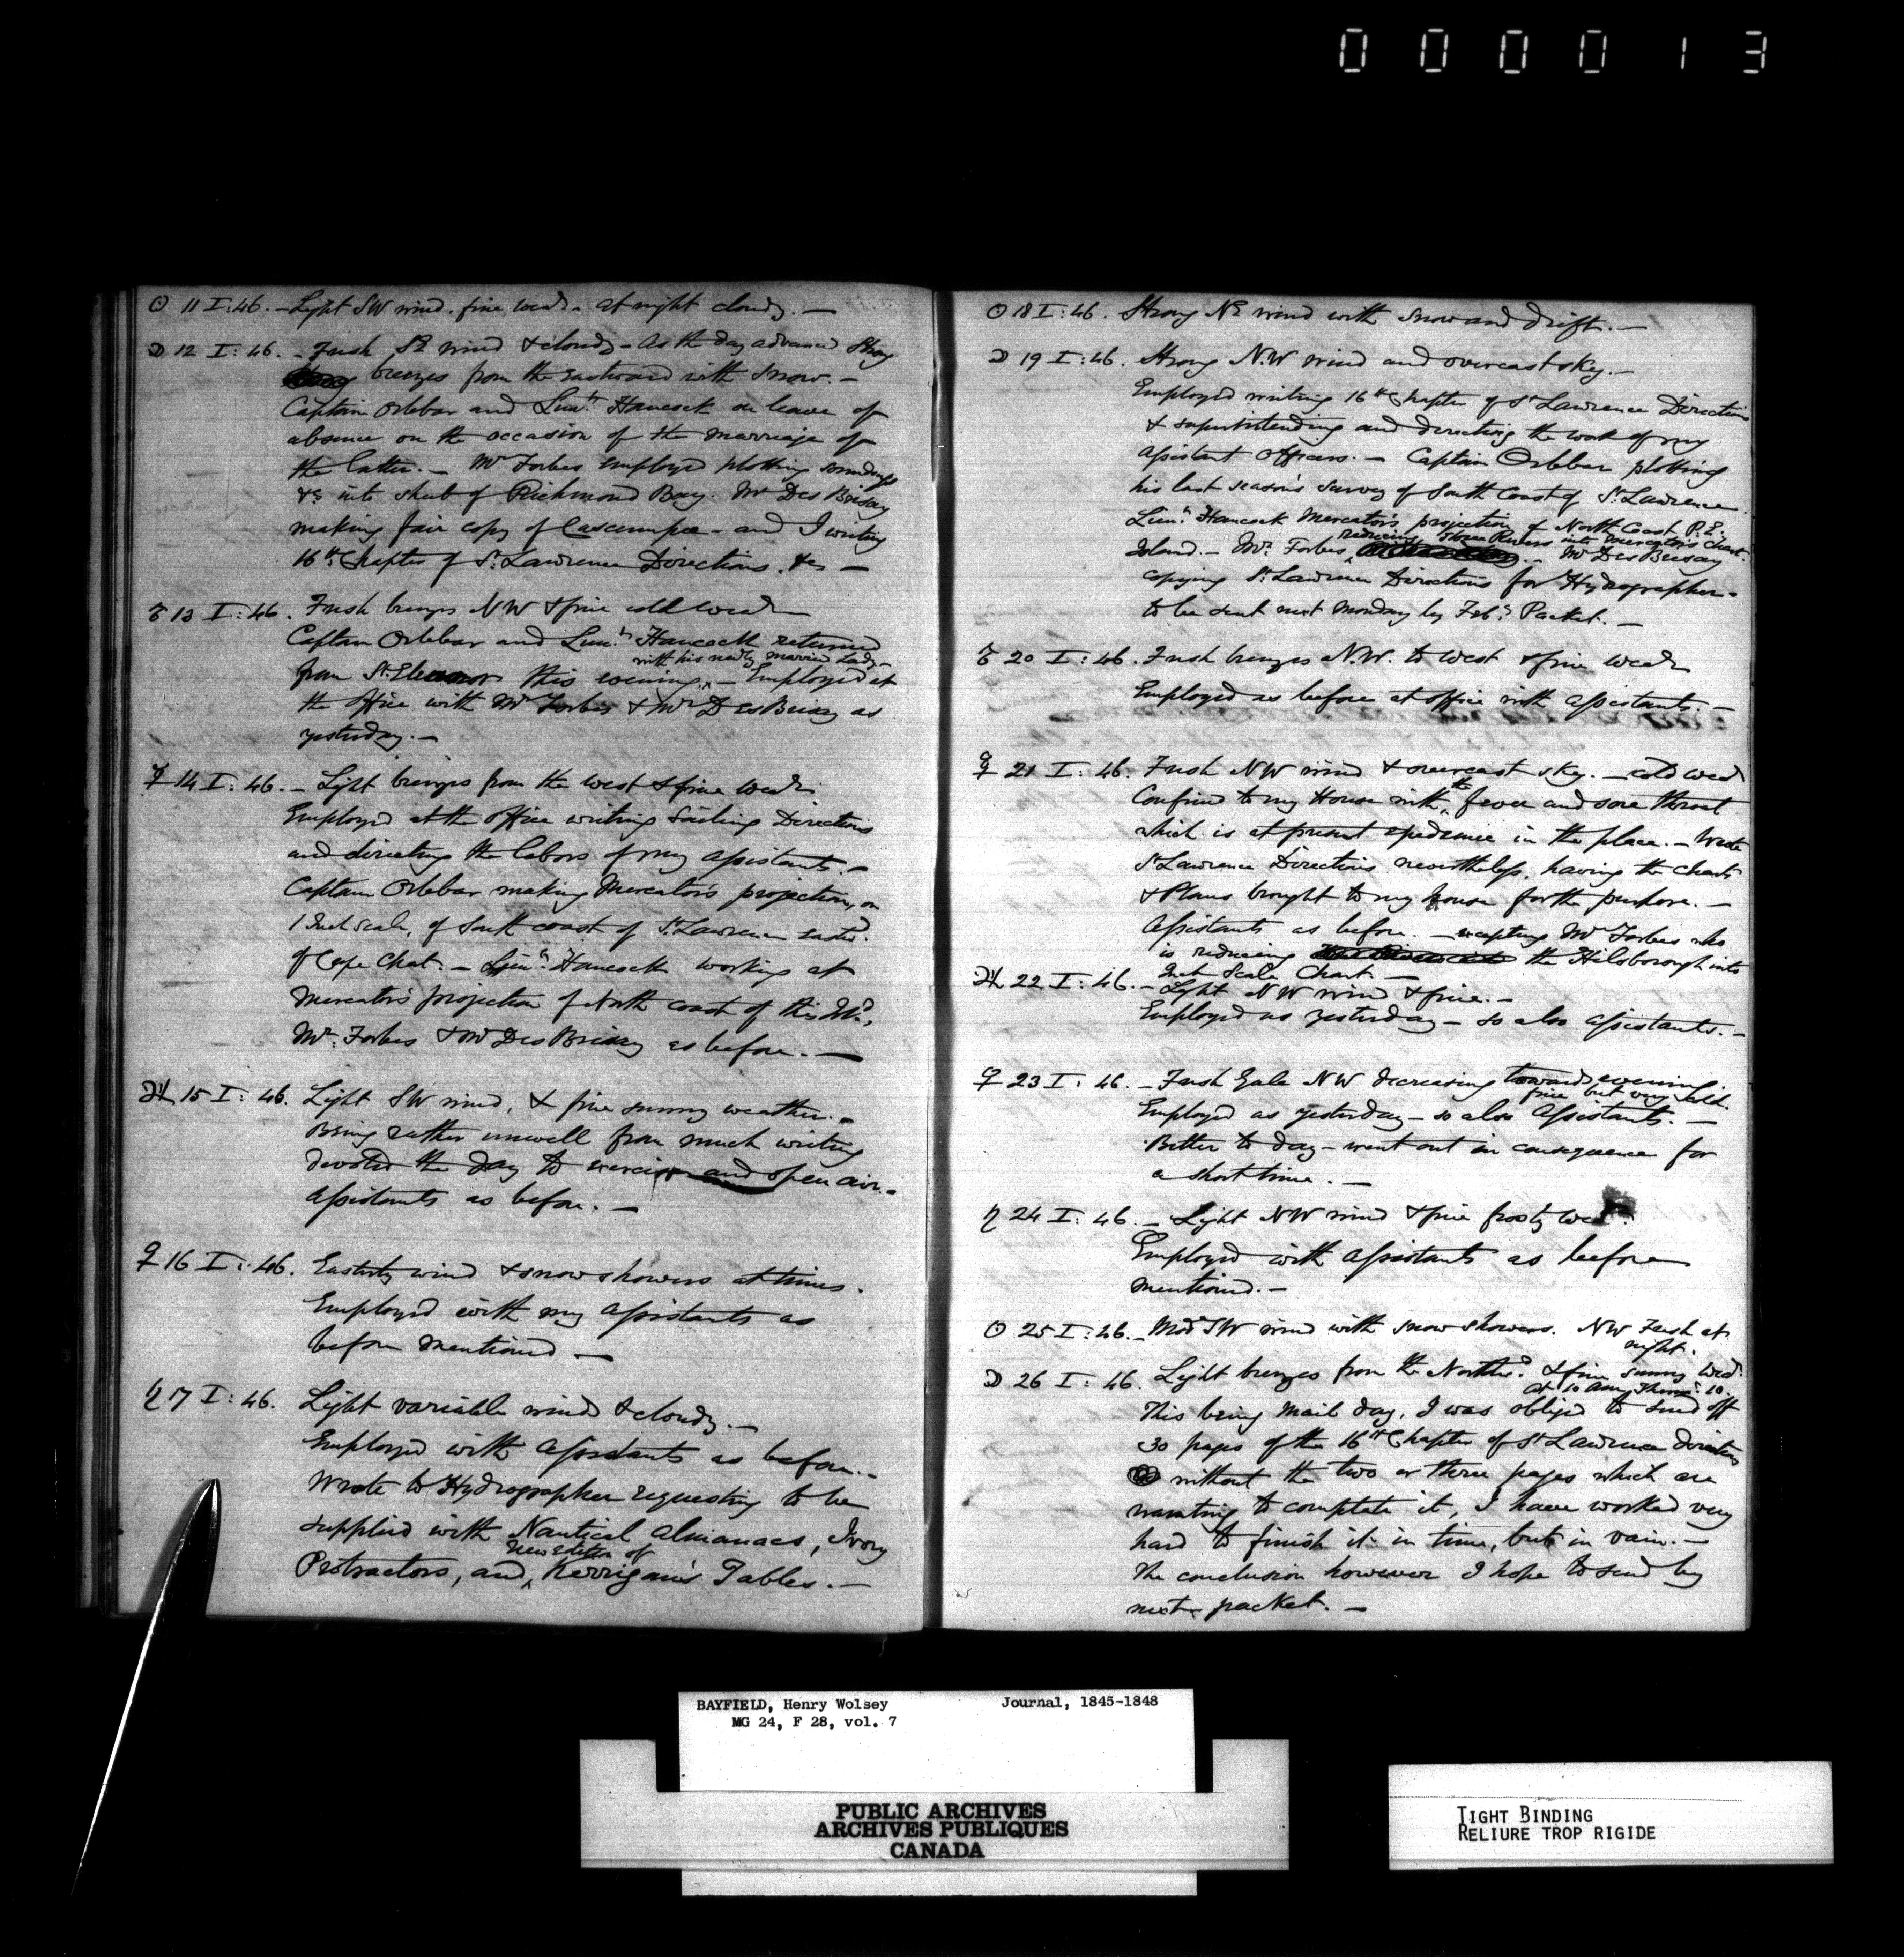 000013
☉ 11 I:46. - Light SW wind. fine wear. at night cloudy. —
☽ 12 I:46. - Fresh SE wind & cloudy - As the day advanced Strong
breezes from the Eastward with Snow. -
Captain Orlebar and Lieut. Hancock on leave of
absence on the occasion of the marriage of
the latter. - Mr Forbes employed plotting soundings
&c into sheet of Richmond Bay. Mr Des Brisay
making fair copy of Cascumpec - and I writing
16th Chapter of St. Lawrence Directions. &c —
♂ 13 I:46. Fresh breezes NW & fine cold wear
Captain Orlebar and Lieut. Hancock returned
with his newly married Lady -
from St. Eleanor this evening ^ - Employed at
the office with Mr Forbes & Mr DesBrisay as
yesterday. -
☿ 14 I:46. - Light breezes from the west & fine wear
Employed at the office writing Sailing Directions
and directing the labors of my Assistants. -
Captain Orlebar making Mercator's projection, on
1 Inch scale, of South coast of St. Lawrence eastd.
of Cape Chat. - Lieut. Hancock working at
Mercator's projection of North coast of this Isd.,
Mr. Forbes & Mr DesBrisay as before. —
♃ 15 I:46. Light SW wind, & fine sunny weather. -
Being rather unwell from much writing
devoted the day to exercise and open air. -
Assistants as before. -
♀ 16 I:46. Easterly wind & snow showers at times.
Employed with my Assistants as
before mentioned —
♄ 17 I:46. Light variable winds & cloudy. —
Employed with Assistants as before. -
Wrote to Hydrographer requesting to be
supplied with Nautical Almanacs, Ivory
new edition of
Protractors, and ^ Kerrigan's Tables. —
☉ 18 I:46. Strong NE wind with Snow and drift. —
☽ 19 I:46. Strong N.W wind and overcast sky. -
Employed writing 16th Chapter of St Lawrence Directions
& superintending and directing the work of my
Assistant Officers. - Captain Orlebar plotting
his last season's survey of South Coast of St. Lawrence.
Lieut. Hancock Mercator's projection of North Coast P.E.
reducing Three Rivers into Mercator's Chart.
Island. - Mr. Forbes ^ - Mr DesBrisay
copying St. Lawrence Directions for Hydrographer -
to be sent next Monday by Feby. Packet. -
♂ 20 I:46. Fresh breezes N.W. to West & fine wear
Employed as before at office with Assistants. -
☿ 21 I:46. Fresh NW wind & overcast sky. - cold wear
Confined to my House with ^ the fever and sore throat
which is at present epidemic in the place. - Wrote
St Lawrence Directions nevertheless, having the Charts
& Plans brought to my house for the purpose. -
Assistants as before. - excepting Mr Forbes who
is reducing the Hilsborough into
Inch Scale Chart -
♃ 22 I:46. - Light NW wind & fine. -
Employed as yesterday - so also Assistants. -
♀ 23 I:46. - Fresh Gale NW decreasing towards evening.
fine but very cold.
Employed as yesterday - so also Assistants. -
Better to day - went out in consequence for
a short time. -
♄ 24 I:46. - Light NW wind & fine frosty wear.
Employed with Assistants as before
mentioned. -
☉ 25 I:46. - Modt SW wind with snow showers. NW Fresh at
night.
☽ 26 I:46. Light breezes from the Northd. & fine sunny wear.
At 10 Am Thermr. 10.
This being Mail day, I was obliged to send off
30 pages of the 16th Chapter of St Lawrence directions
without the two or three pages which are
wanting to complete it, I have worked very
hard to finish it in time, but in vain. -
The conclusion however I hope to send by
next packet. —
BAYFIELD, Henry Wolsey Journal, 1845-1848
MG 24, F 28, vol. 7
PUBLIC ARCHIVES
ARCHIVES PUBLIQUES
CANADA
TIGHT BINDING
RELIURE TROP RIGIDE